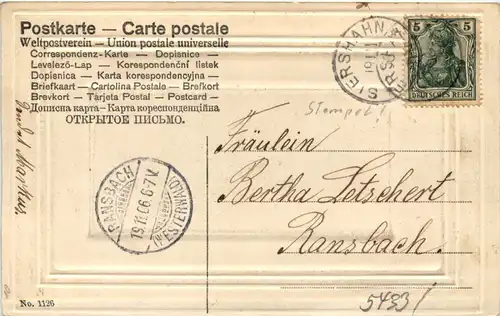 Postkarte — Carte postale
Weltpostverein — Union postale universelle
Correspondenz-Karte — Dopisnice —
Levelező-Lap — Korespondenční listek
Dopisnica — Karta korespondencyjna —
Briefkaart — Cartolina Postale — Brefkort
Brevkort — Tarjeta Postal — Postcard —
Дописна карта — Карта кореспонденційна
ОТКРЫТОЕ ПИСЬМО.
SIERSHAHN
5 5
DEUTSCHES REICH
Stempel!
RANSBACH
19.11.06.6-7V.
(WESTERWALD)
Fräulein
Bertha Letschert
Ransbach.
No. 1126
5433